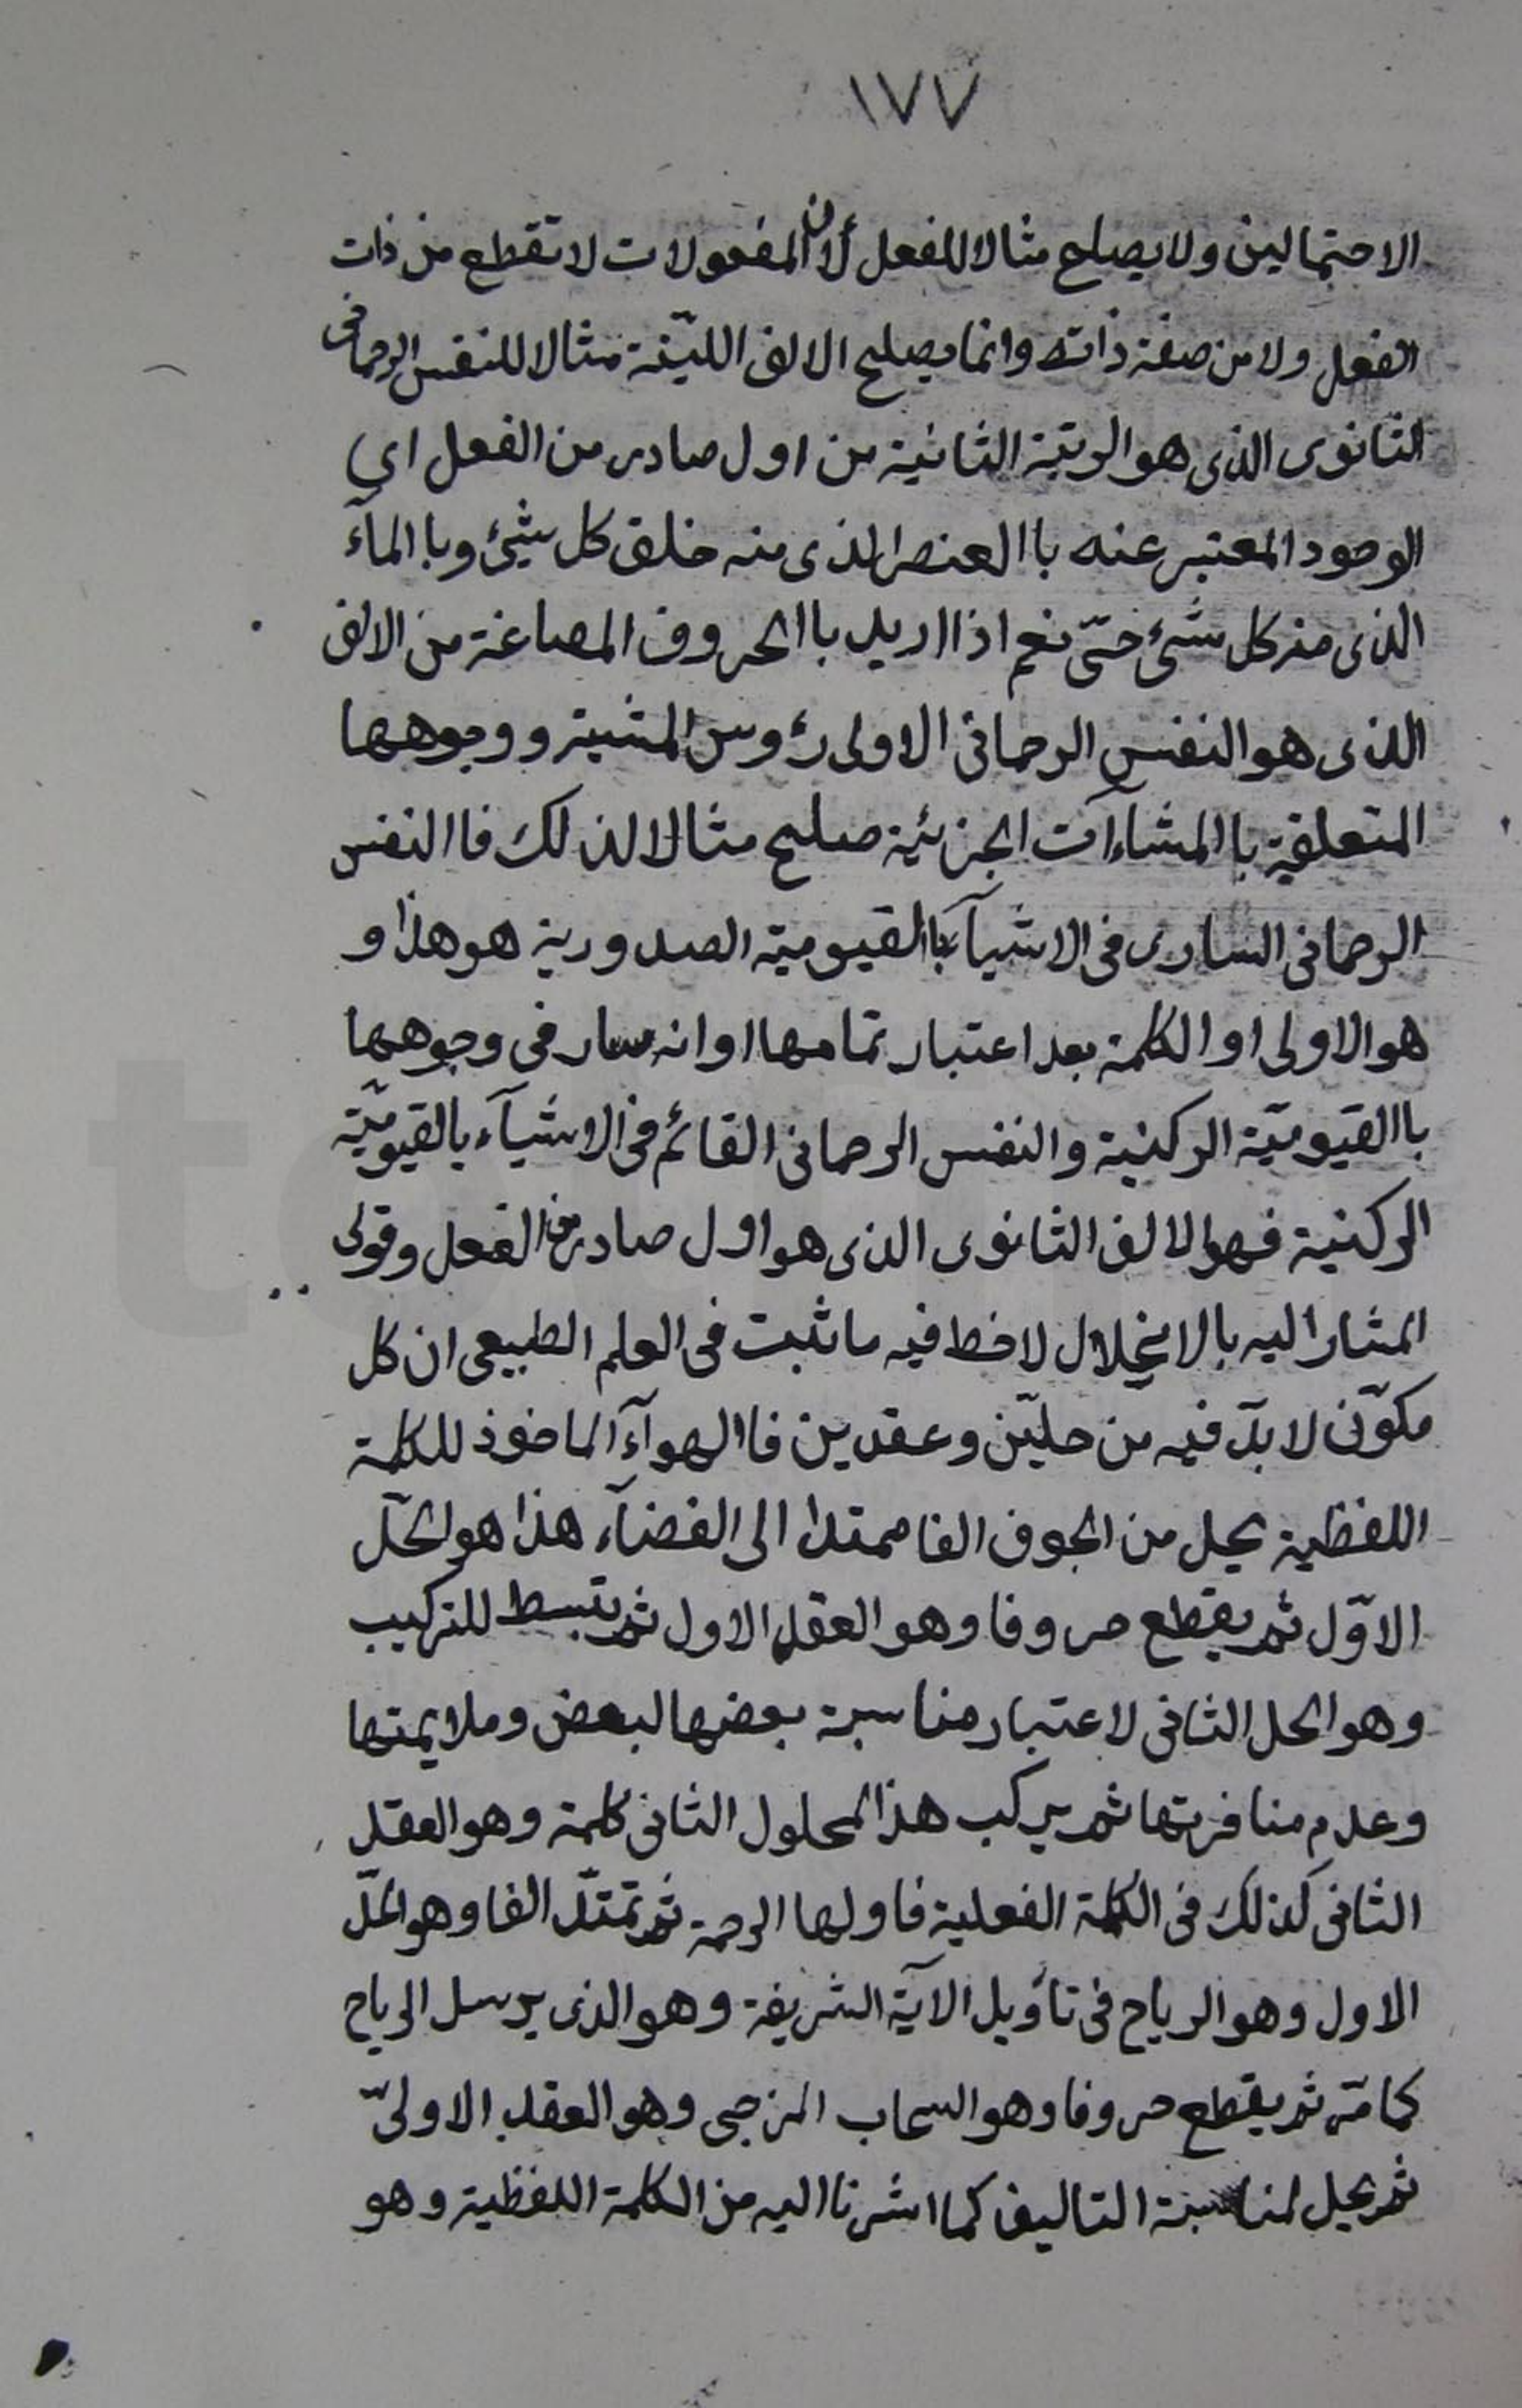 ١٧٧
الاحتمالين ولا يصلح مثالا للفعل لأن المفعولات لا تقطع من ذات
الفعل ولا من صفة ذاته وانما يصلح الالف اللينة مثالا للنفس الرحمانى
الثانوى الذى هو الرتبة الثانية من اول صادر من الفعل اى
الوجود المعتبر عنه باالعنصر الذى منه خلق كل شيئ وباالمآء
الذى منه كل شئ حىّ نعم اذا اريد باالحروف المصاغة من الالف
الذى هو النفس الرحمانى الاولى رؤوس المشية ووجوهها
المتعلقة باالمشاءآت الجزئية صلح مثالا لذلك فاالنفس
الرحمانى السارى فى الاشيآء باالقيومية الصدورية هو هذا و
هو الاولى او الكلمة بعد اعتبار تمامها او انه سار فى وجوهها
باالقيوميّة الركنية والنفس الرحمانى القائم فى الاشيآء بالقيوميّة
الركنية فهو الالف الثانوى الذى هو اول صادر من الفعل وقولى
المشار اليه بالانحلال لاحظ فيه ما ثبت فى العلم الطبيعى ان كل
مكوّن لا بدّ فيه من حلّين وعقدين فاالهوآء الماخوذ للكلمة
اللفظية يحل من الجوف الفا ممتدا الى الفضآء هذا هو الحلّ
الاوّل ثم يقطع حروفا وهو العقد الاول ثم يبسط للتركيب
وهو الحل الثانى لاعتبار مناسبة بعضها لبعض وملايمتها
وعدم منافرتها ثم يركب هذا المحلول الثانى كلمة وهو العقد
الثانى كذلك فى الكلمة الفعلية فاولها الرحمة ثم تمتدّ الفا وهو الحلّ
الاول وهو الرياح فى تأويل الآية الشريفة وهو الذى يرسل الرياح
كما مرّ ثم يقطع حروفا وهو السحاب المزجى وهو العقد الاولىّ
ثم يحل لمناسبة التاليف كما اشرنا اليه من الكلمة اللفظية وهو